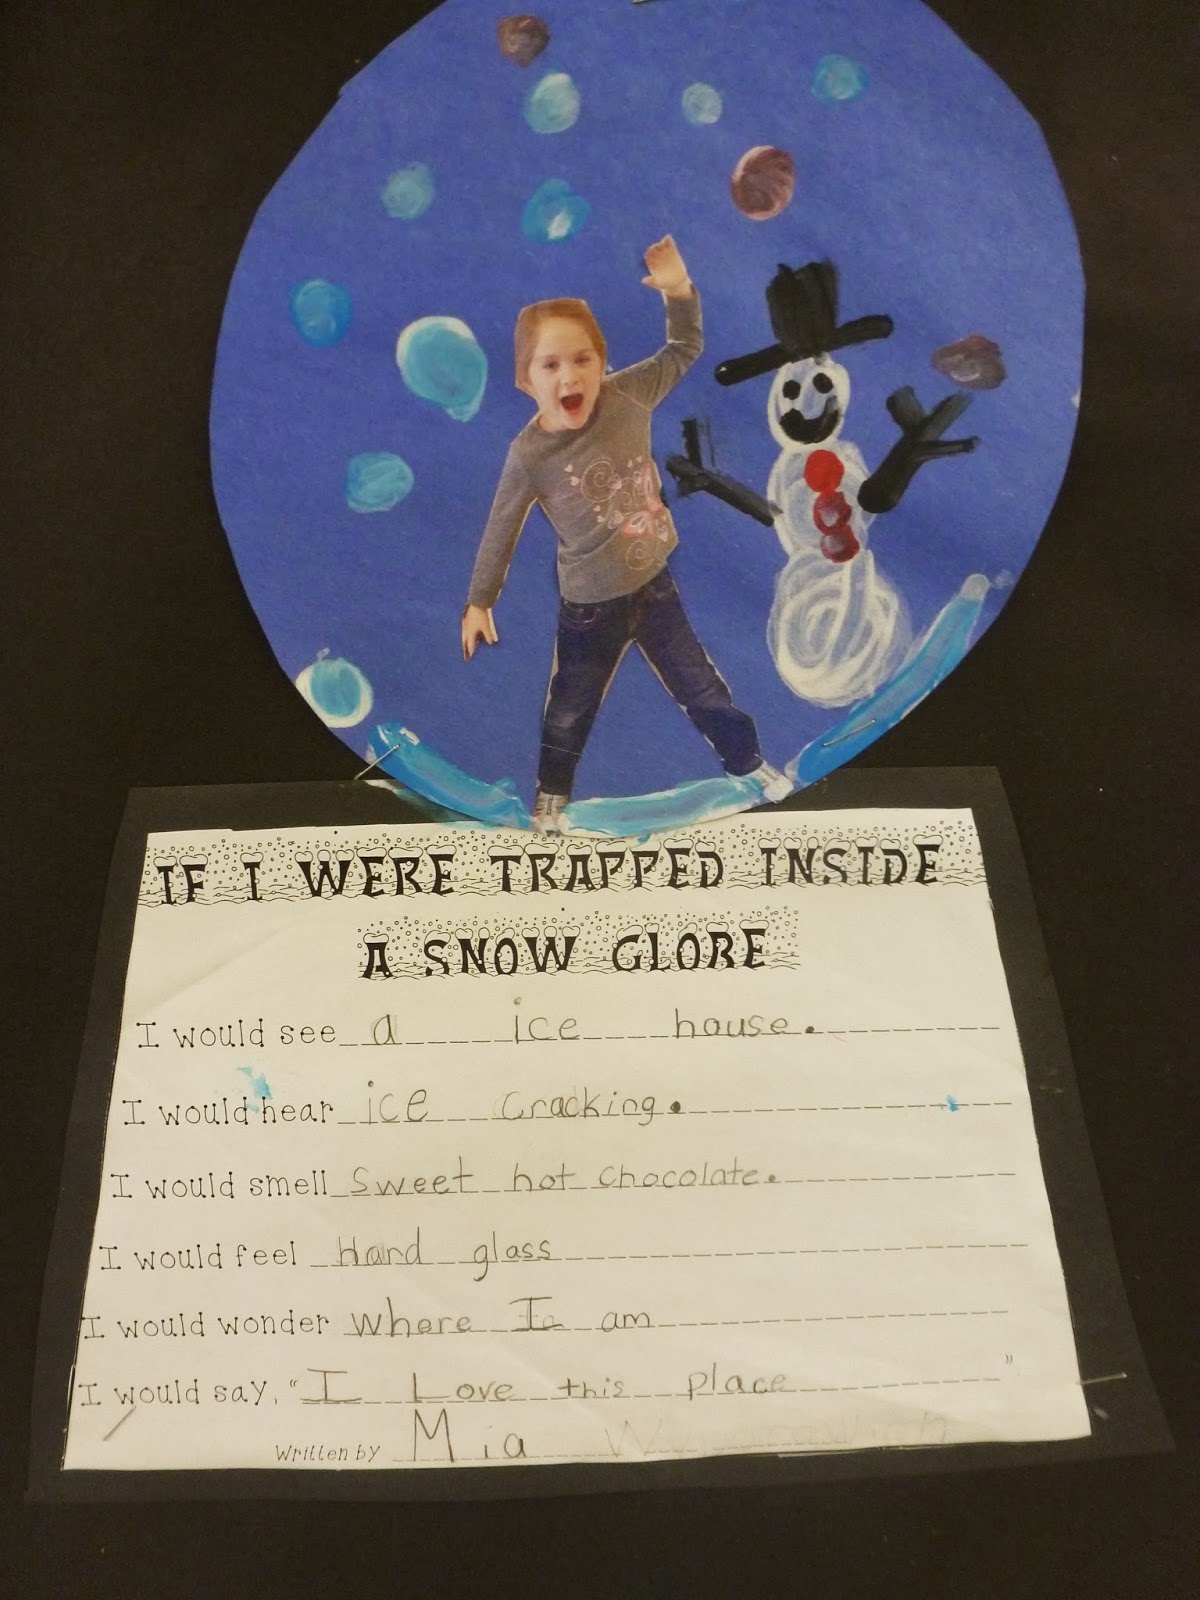 IF I WERE TRAPPED INSIDE
A SNOW GLOBE
I would see a ice house.
I would hear ice cracking.
I would smell sweet hot chocolate.
I would feel Hard glass
I would wonder where I am
I would say, "I Love this place"
Written by Mia